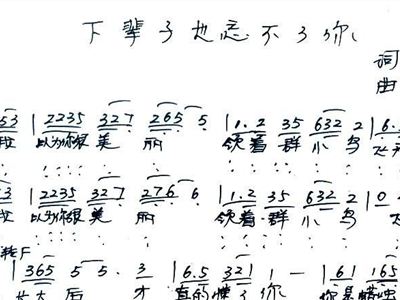 下辈子也忘不了你
词
曲
53 | 2235 327 265 5 | 1.2 35 632 2 | 6.
拉 以为你很美 丽 领着群小鸟 飞
3 | 2235 327 276 6 | 1.2 35 632 2 | 0
拉 以为你很美 丽 领着群小鸟
转F
| 365 5 5 . 3 | 6.5 321 1 — | 61 165
长大后 才 真的懂了你 你是